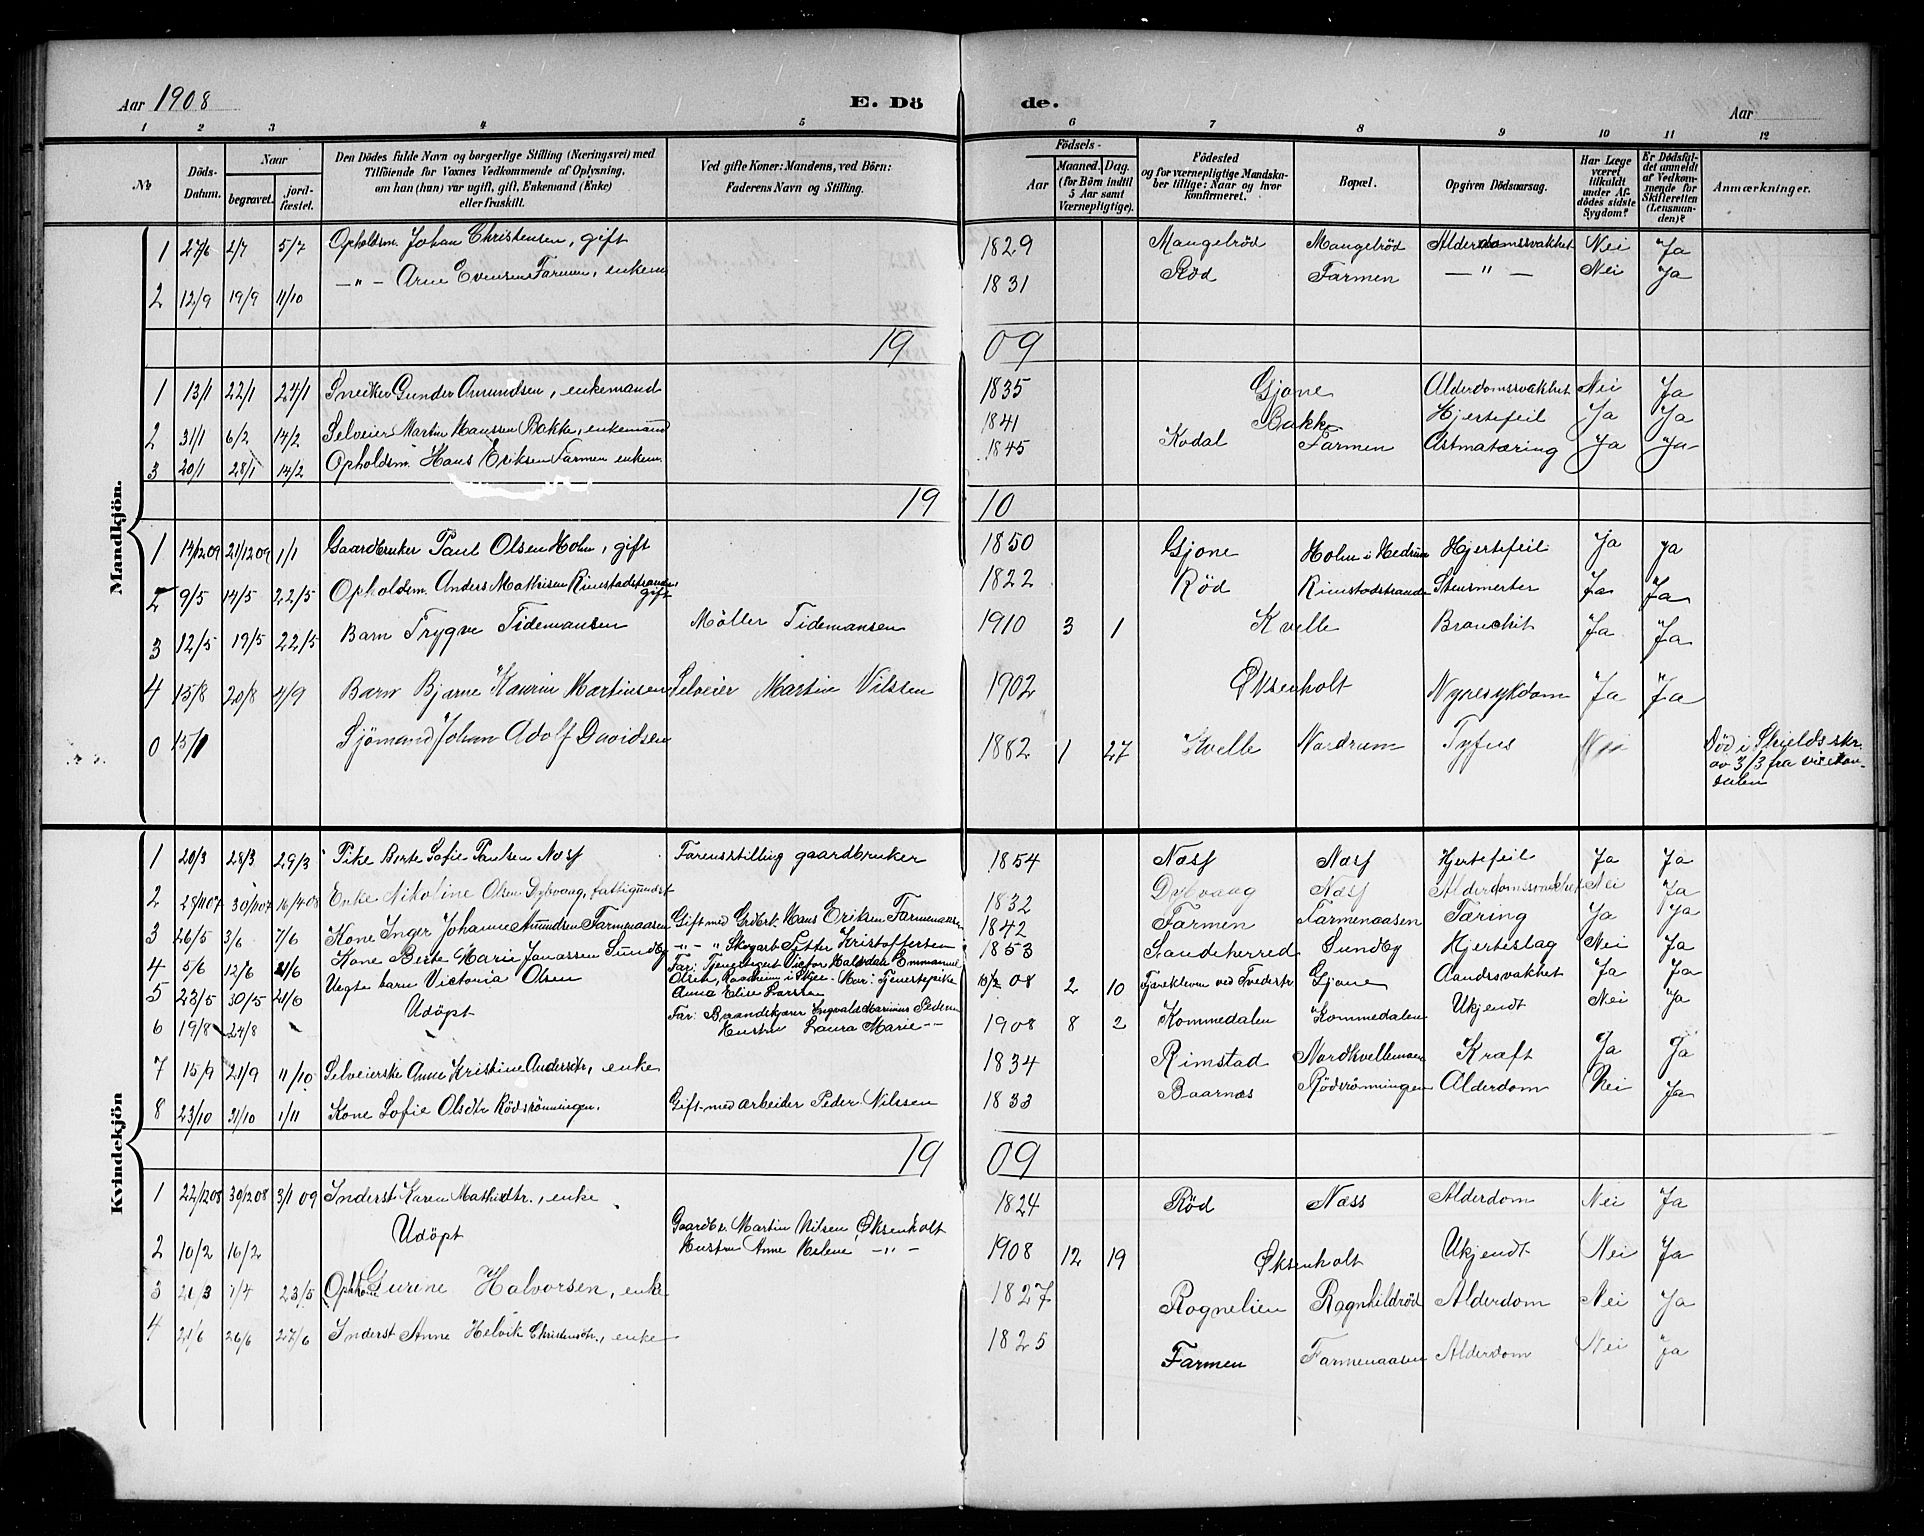 Aar 1908 E. Dö de. Aar
1 2 3 4 5 6 7 8 9 10 11 12
No Döds-Datum. Naar begravet. jordfæstet. Den Dödes fulde Navn og borgerlige Stilling (Næringsvei) med Tilföiende for Voxnes Vedkommende af Oplysning, om han (hun) var ugift, gift, Enkemand (Enke) eller fraskilt. Ved gifte Koner: Mandens, ved Börn: Faderens Navn og Stilling. Födsels- Aar Maaned. Dag. (for Börn indtil 5 Aar samt Værnepligtige). Födested og for værnepligtige Mandskaber tillige: Naar og hvor konfirmeret. Bopæl. Opgiven Dödsaarsag. Har Læge været tilkaldt under Afdödes sidste Sygdom? Er Dödsfaldet anmeldt af Vedkommende for Skifteretten (Lensmanden)? Anmærkninger.
Mandkjön.
1 27/6 2/7 5/7 Opholdsm. Johan Christensen, gift 1829 Mangelröd Mangelröd Alderdomssvakhet Nei Ja
2 12/9 19/9 11/10 —"— Arne Evensen Farmen, enkem 1831 Röd Farmen —"— Nei Ja
19 09
1 13/1 22/1 24/1 Snecker Gunder Amundsen, enkemand 1835 Gjone Alderdomssvakhet Nei Ja
2 31/1 6/2 14/2 Selveier Martin Hanssen Bakke, enkemand 1841 Bakke Hjertefeil Ja Ja
3 20/1 28/1 14/2 Opholdsm. Hans Eriksen Farmen enkem. 1845 Kodal Farmen Astmatæring Ja Ja
19 10
1 14/12 09 21/12 09 1/1 Gaardbruker Paul Olsen Holm, gift 1850 Gjone Holm i Hedrum Hjertefeil Ja Ja
2 9/5 14/5 22/5 Opholdsm. Anders Mathisen Rimstadstranden, gift 1822 Röd Rimstadstranden Stensmerter Ja Ja
3 12/5 19/5 22/5 Barn Trygve Tidemansen Möller Tidemansen 1910 3 1 Kvelle Bronchit Ja Ja
4 15/8 20/8 4/9 Barn Bjarne Kaurin Martinsen Selveier Martin Nilsen 1902 Øksenholt Nyresykdom Ja Ja
0 15/1 Sjömand Johan Adolf Davidsen 1882 1 27 Kvelle Nordrum Tyfus Nei Död i Shields skr. av 3/3 fra
Kvindekjön
1 20/3 28/3 29/3 Pike Berte Sofie Paulsen Næss Farensstilling gaardbruker 1854 Næss Næss Hjertefeil Ja Ja
2 28/11 07 30/11 07 16/4 08 Enke Nikoline Olsen Dybvaag, fattigunderst 1832 Dybvaag Næss Alderdomssvakhet Nei Ja
3 26/5 3/6 7/6 Kone Inger Johanne Amundsen Farmenaasen Gift med Grdbr. Hans Eriksen Farmenaasen 1842 Farmen Farmenaasen Tæring Ja Ja
4 5/6 12/6 21/6 Kone Berte Marie Jonassen Sundby "— " Skogarb. Petter Kristoffersen 1853 Sandeherred Sundby Hjerteslag Nei Ja
5 23/5 30/5 21/6 Uegte barn Victoria Olsen Far: Tjenestegut Victor Halvdan Emmanuel Olsen, Raaheim i Skjee. Mor: Tjenestepike Anna Elise Larsen 13/2 08 2 10 ved Tvedestr Gjone Aandssvakhet Ja Ja
6 19/8 24/8 Udöpt Far: Ingvald Marinius Pedersen Hustru Laura Marie —"— 1908 8 2 Kommedalen Kommedalen Ukjendt Nei Ja
7 15/9 21/9 11/10 Selveierske Anne Kristine Andersdtr, enke 1834 Rimstad Nordkvellemoen Kræft Ja Ja
8 23/10 31/10 1/11 Kone Sofie Olsdtr Rödsrönningen. Gift med arbeider Peder Nilssen 1833 Baarnæs Rödsrönningen Alderdom Nei Ja
19 09
1 22/12 08 30/12 08 3/1 09 Inderst Karen Mathisdtr., enke 1824 Röd Næss Alderdom Nei Ja
2 10/2 16/2 Udöpt Gaardbr. Martin Nilsen Øksenholt Hustru Anne Helene —"— 1908 12 19 Øksenholt Ukjendt Nei Ja
3 21/3 1/4 23/5 Gurine Halvorsen, enke 1827 Rognelien Ragnhildröd Alderdom Nei Ja
4 21/6 26/6 27/6 Inderst Anne Helvik Christensdtr., enke 1825 Farmen Farmenaasen Alderdom Nei Ja